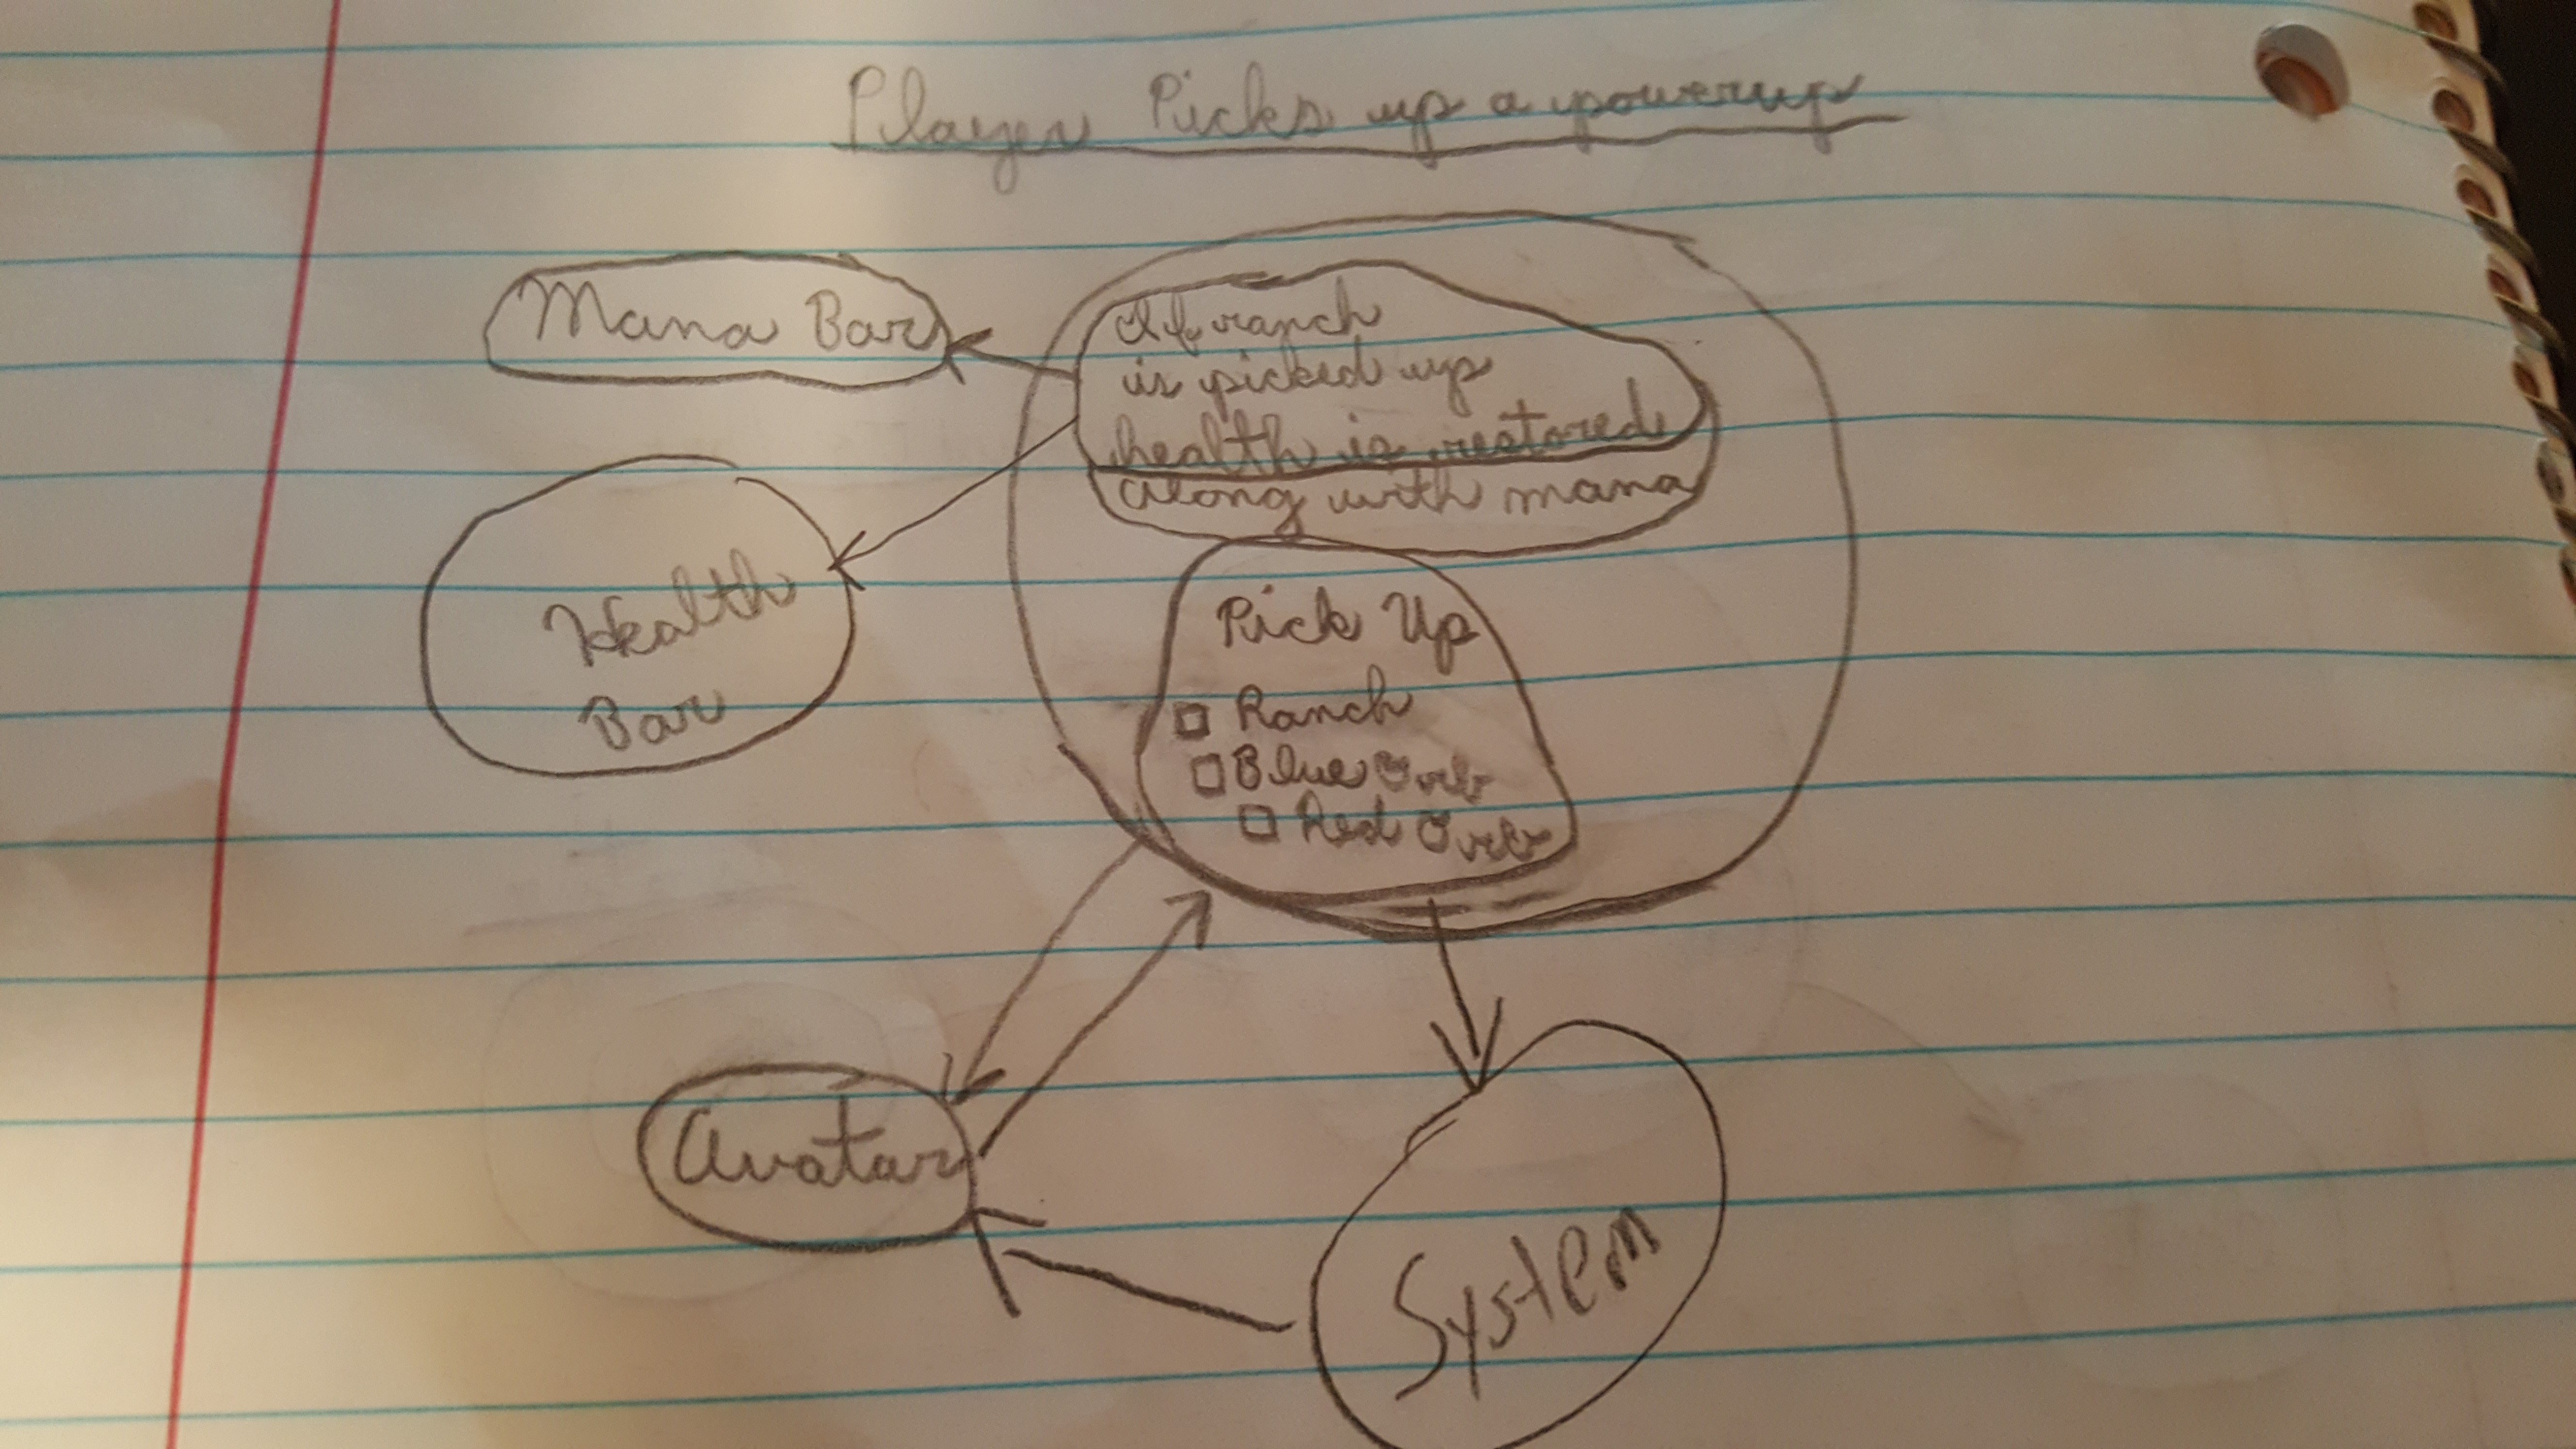 Player Picks up a powerup
Mana Bar
If ranch
is picked up
health is restored
along with mana
Health
Bar
Pick Up
Ranch
Blue Orb
Red Orb
Avatar
System